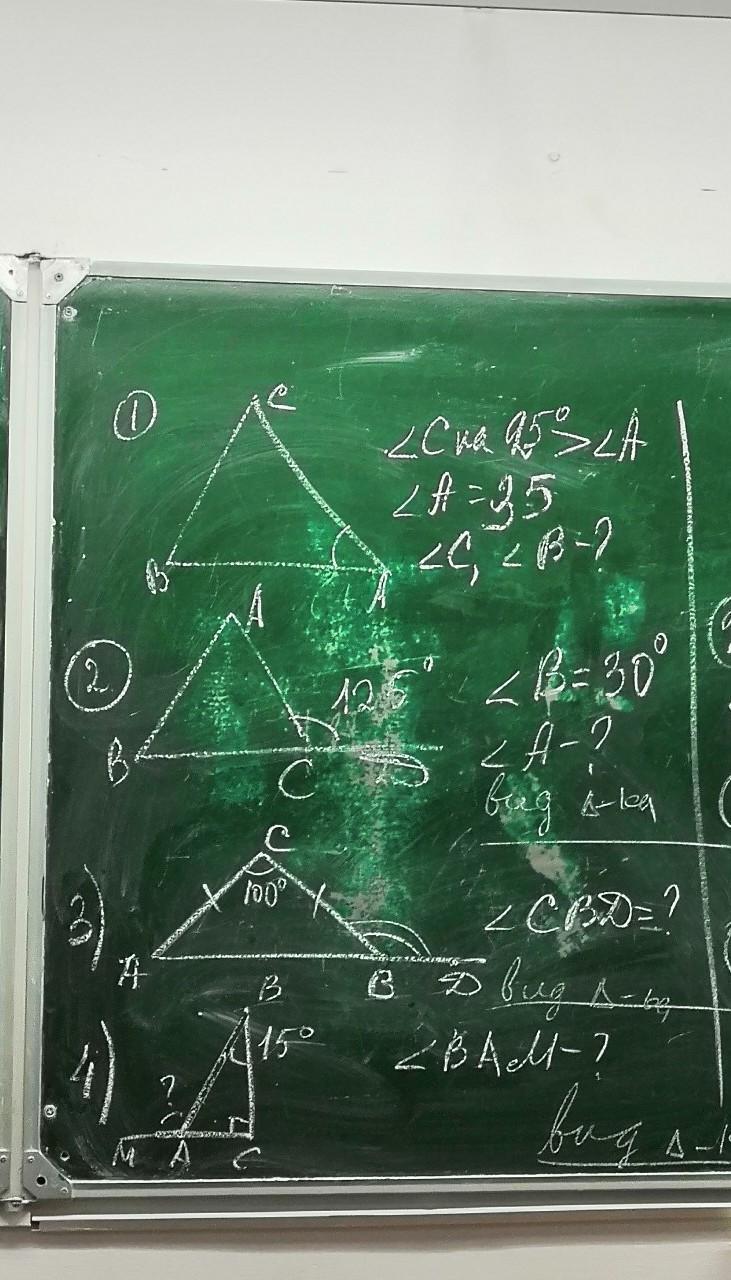 ①
C
B
A
∠C на 25° > ∠A
∠A = 35
∠C, ∠B - ?
②
A
B
C
D
125°
∠B = 30°
∠A - ?
вид Δ-ка
3)
C
100°
A
B
D
∠CBD = ?
вид Δ-ка
4)
B
15°
?
M A C
∠BAM - ?
вид Δ-